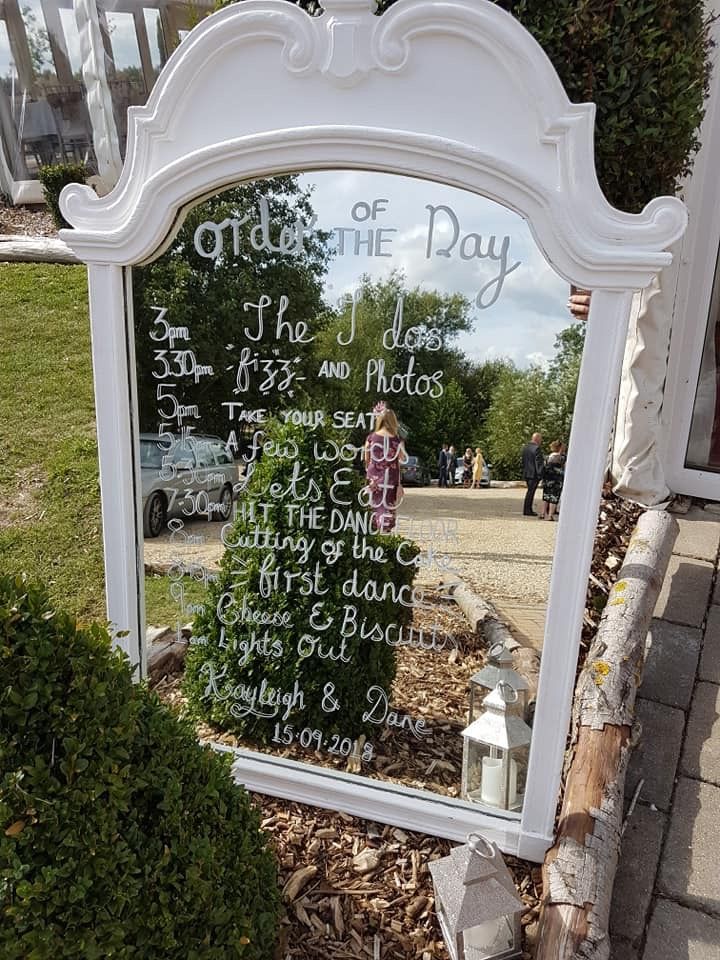 order OF THE Day
3pm The I dos
3.30pm "fizz" AND Photos
5pm TAKE YOUR SEAT
5.15 A few words
5.30pm Lets Eat
7.30pm HIT THE DANCE FLOOR
8pm Cutting of the Cake
8.15pm first dance
9pm Cheese & Biscuits
1am Lights Out
Kayleigh & Dane
15.09.2018